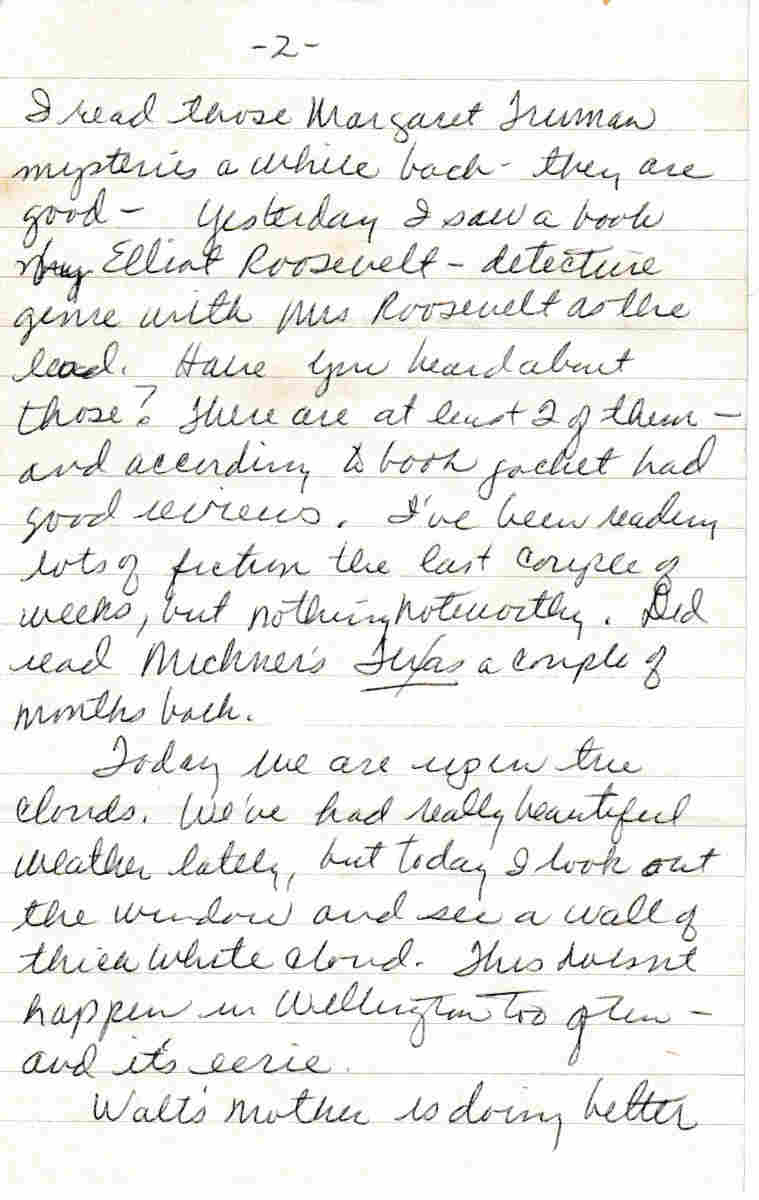 -2-
I read those Margaret Truman
mysteries a while back - they are
good - Yesterday I saw a book
by Elliot Roosevelt - detective
genre with Mrs Roosevelt as the
lead. Have you heard about
those? There are at least 2 of them -
and according to book jacket had
good reviews. I've been reading
lots of fiction the last couple of
weeks, but nothing noteworthy. Did
read Michner's Texas a couple of
months back.
Today we are up in the
clouds. We've had really beautiful
weather lately, but today I look out
the window and see a wall of
thick white cloud. This doesn't
happen in Wellington too often -
and it's eerie.
Walt's mother is doing better